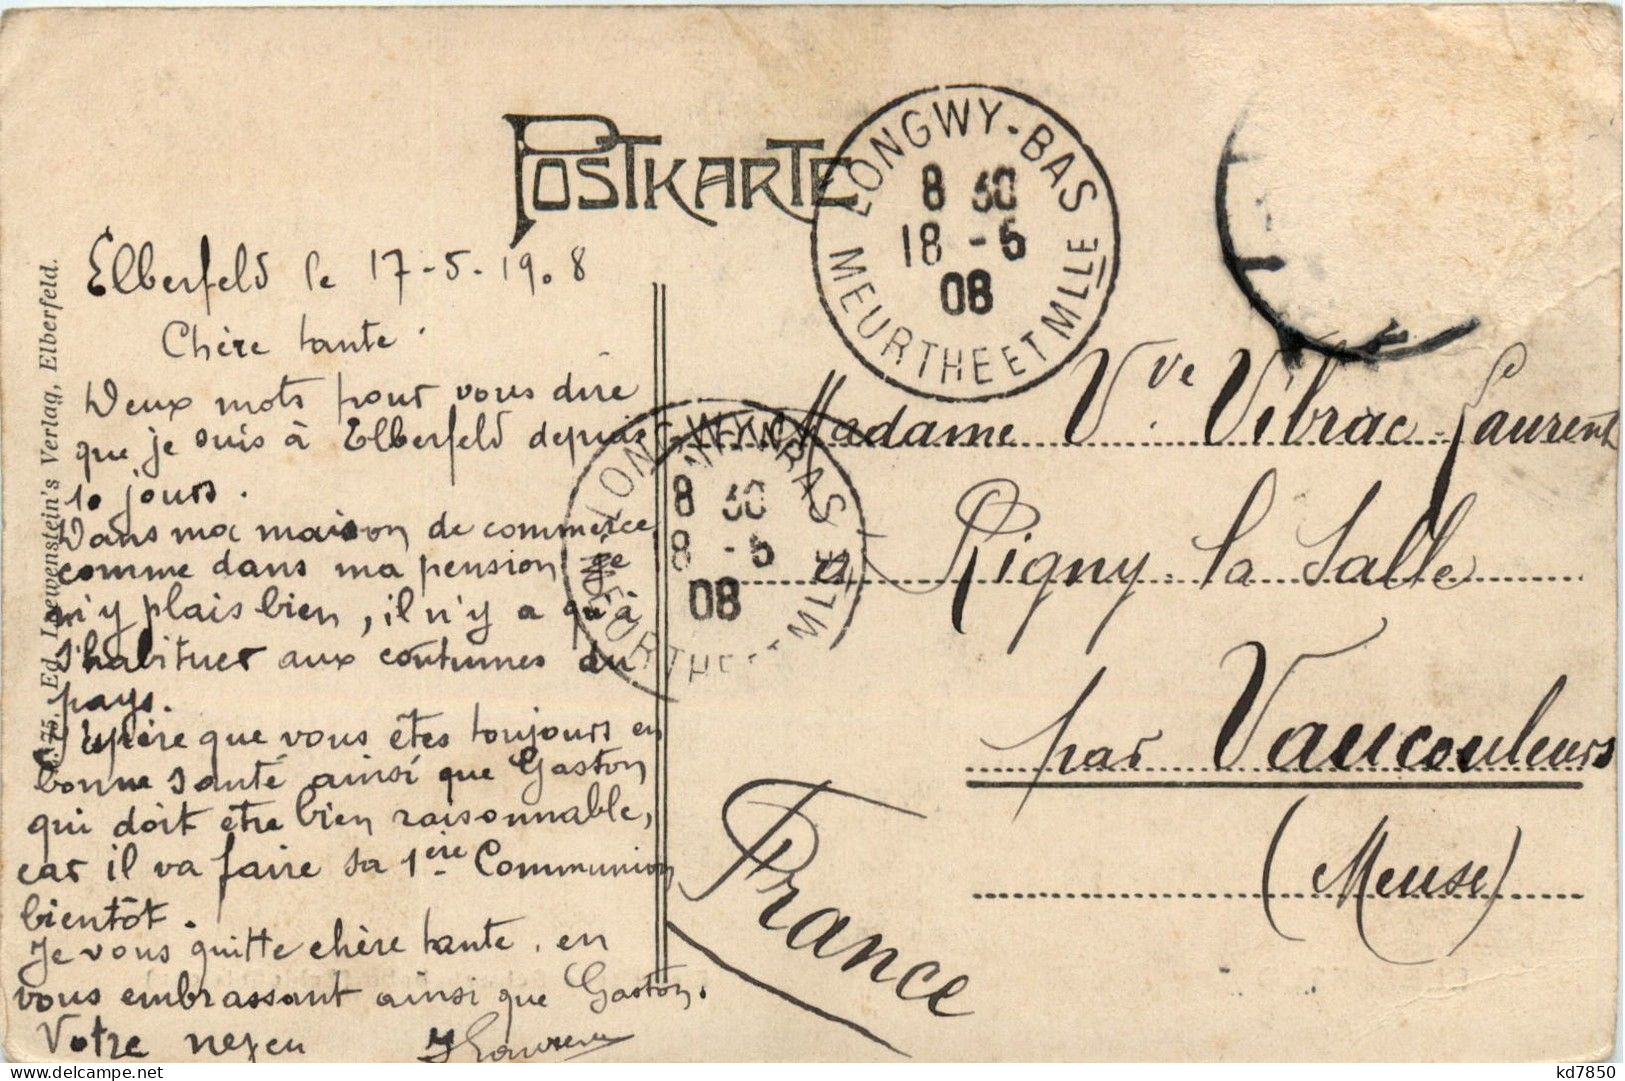 POSTKARTE
LONGWY-BAS
8 30
18 -5
08
MEURTHE ET MLLE
Elberfeld le 17-5-1908
Chère tante.
Deux mots pour vous dire
que je suis à Elberfeld depuis
10 jours.
Dans ma maison de commerce
comme dans ma pension je
m'y plais bien, il n'y a qu'à
s'habituer aux coutumes du
pays.
J'espère que vous êtes toujours en
bonne santé ainsi que Gaston
qui doit être bien raisonnable,
car il va faire sa 1ère Communion
bientôt.
Je vous quitte chère tante, en
vous embrassant ainsi que Gaston.
Votre neveu
Laurent
75. Ed. Loewenstein's Verlag, Elberfeld.
8 30
8 -5
08
Madame Vve Vibrac-Laurent
à Rigny la Salle
par Vaucouleurs
(Meuse)
France
kd7850